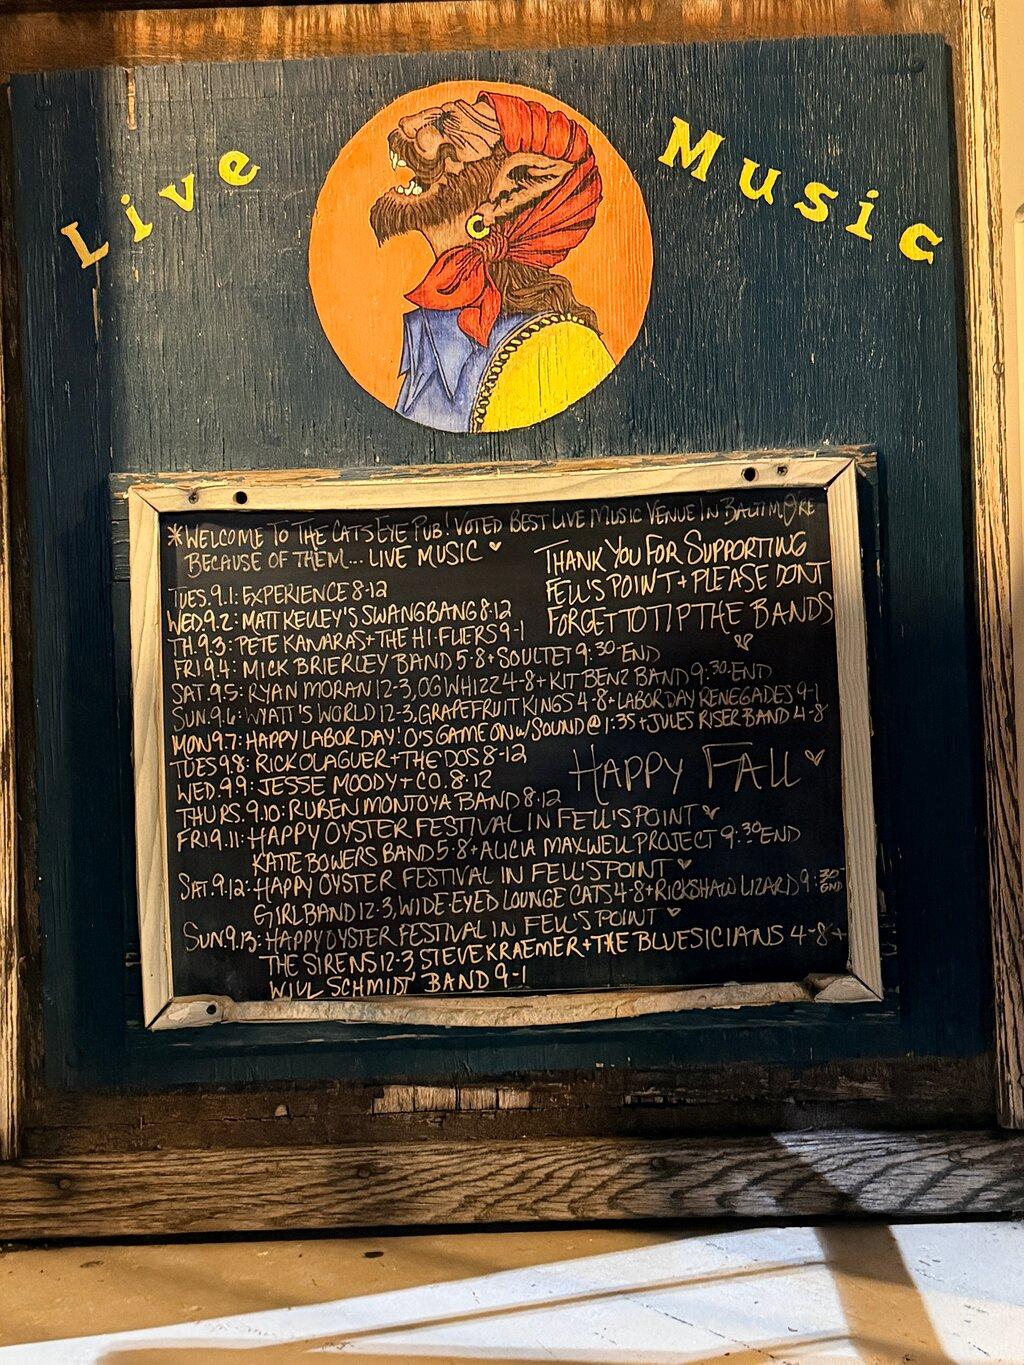 Live Music
*WELCOME TO THE CATS EYE PUB! VOTED BEST LIVE MUSIC VENUE IN BALTIMORE
BECAUSE OF THEM... LIVE MUSIC ♥
THANK YOU FOR SUPPORTING
FELL'S POINT + PLEASE DONT
FORGET TO TIP THE BANDS
♥
TUES.9.1: EXPERIENCE 8-12
WED.9.2: MATT KELLEY'S SWANGBANG 8-12
TH.9.3: PETE KANARAS + THE HI-FLIERS 9-1
FRI 9.4: MICK BRIERLEY BAND 5-8 + SOULTET 9:30-END
SAT.9.5: RYAN MORAN 12-3, OG WHIZZ 4-8 + KIT BENZ BAND 9:30-END
SUN.9.6: WYATT'S WORLD 12-3, GRAPEFRUIT KINGS 4-8 + LABOR DAY RENEGADES 9-1
MON 9.7: HAPPY LABOR DAY! O'S GAME ON w/SOUND @ 1:35 + JULES RISER BAND 4-8
TUES 9.8: RICK OLAGUER + THE DOS 8-12
WED. 9.9: JESSE MOODY + CO. 8-12
THURS. 9.10: RUBEN MONTOYA BAND 8-12
HAPPY FALL ♥
FRI 9.11: HAPPY OYSTER FESTIVAL IN FELL'S POINT ♥
KATIE BOWERS BAND 5-8 + ALICIA MAXWELL PROJECT 9:30 END
SAT. 9.12: HAPPY OYSTER FESTIVAL IN FELL'S POINT ♥
GIRL BAND 12-3, WIDE-EYED LOUNGE CATS 4-8 + RICKSHAW LIZARD 9:30-END
SUN. 9.13: HAPPY OYSTER FESTIVAL IN FELL'S POINT ♥
THE SIRENS 12-3 STEVE KRAEMER + THE BLUESICIANS 4-8 +
WILL SCHMIDT BAND 9-1